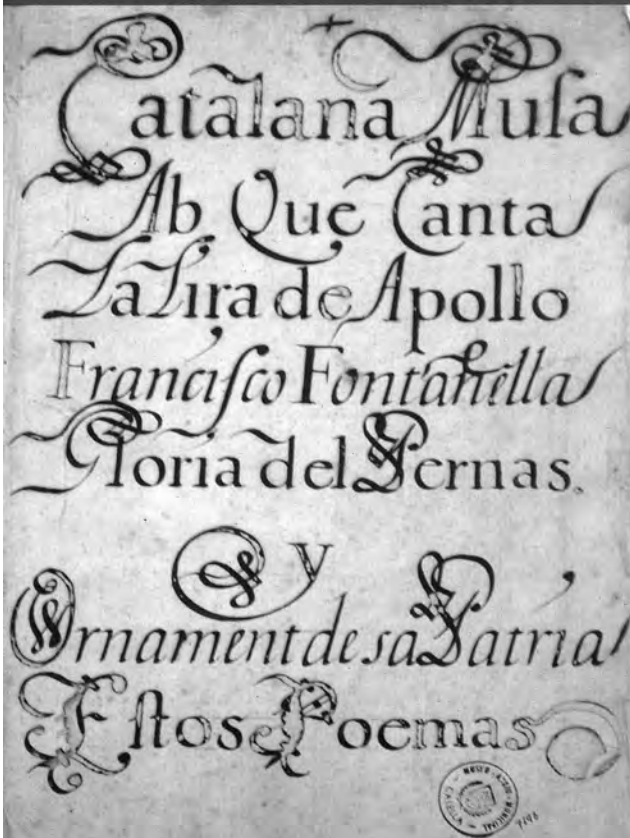 Catalana Muſa
Ab Que Canta
La Lira de Apollo
Franciſco Fontanella
Gloria del Pernas.
y
Ornament de sa Patria
Eſtos Poemas